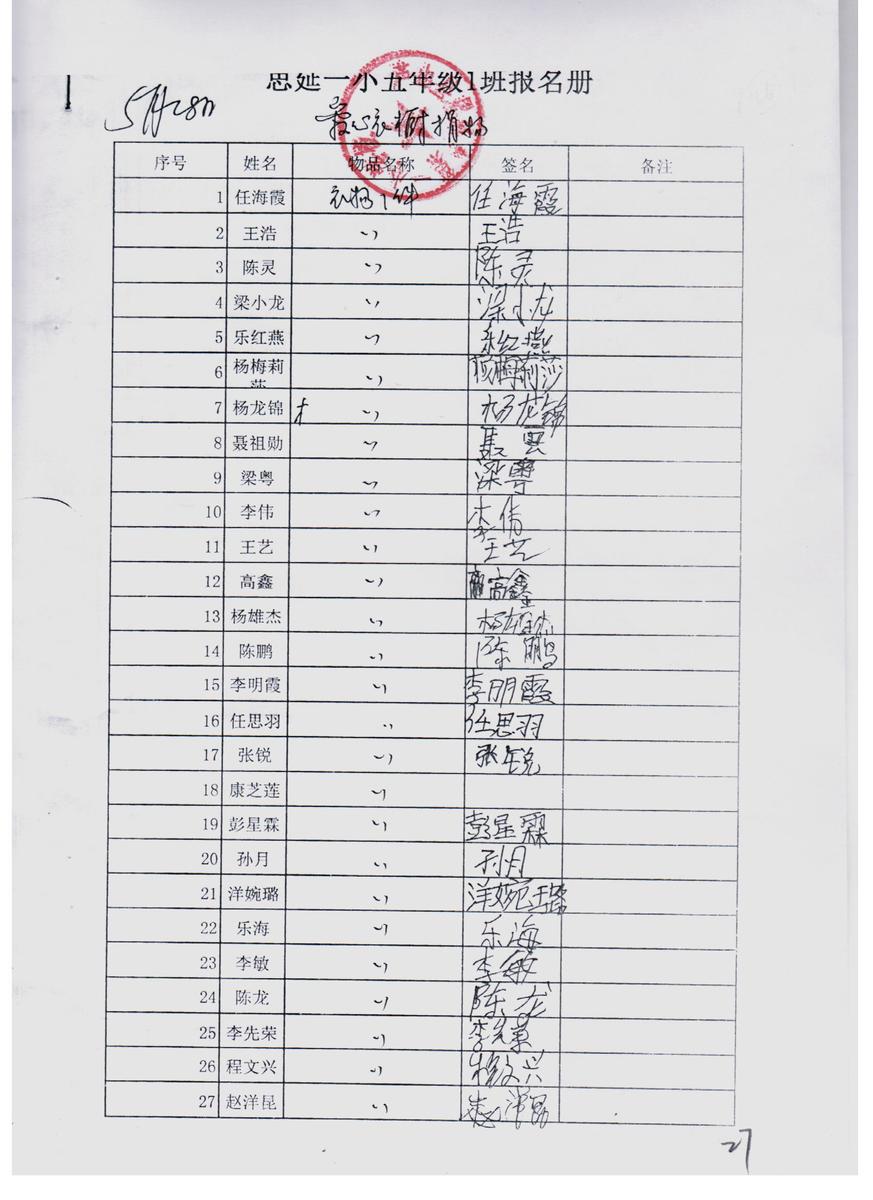 思延一小五年级1班报名册
5月28日
爱心衣橱捐物
序号 姓名 物品名称 签名 备注
1 任海霞 衣物1件 任海霞
2 王浩 〃 王浩
3 陈灵 〃 陈灵
4 梁小龙 〃 梁小龙
5 乐红燕 〃 乐红燕
6 杨梅莉莎 〃 杨梅莉莎
7 杨龙锦 〃 杨龙锦
8 聂祖勋 〃
9 梁粤 〃 梁粤
10 李伟 〃 李
11 王艺 〃 王艺
12 高鑫 〃 高鑫
13 杨雄杰 〃 杨雄杰
14 陈鹏 〃 陈鹏
15 李明霞 〃 李明霞
16 任思羽 〃 任思羽
17 张锐 〃 张锐
18 康芝莲 〃
19 彭星霖 〃 彭星霖
20 孙月 〃 孙月
21 洋婉璐 〃 洋婉璐
22 乐海 〃 乐海
23 李敏 〃 李敏
24 陈龙 〃 陈龙
25 李先荣 〃 李先
26 程文兴 〃 文兴
27 赵洋昆 〃 洋昆
27